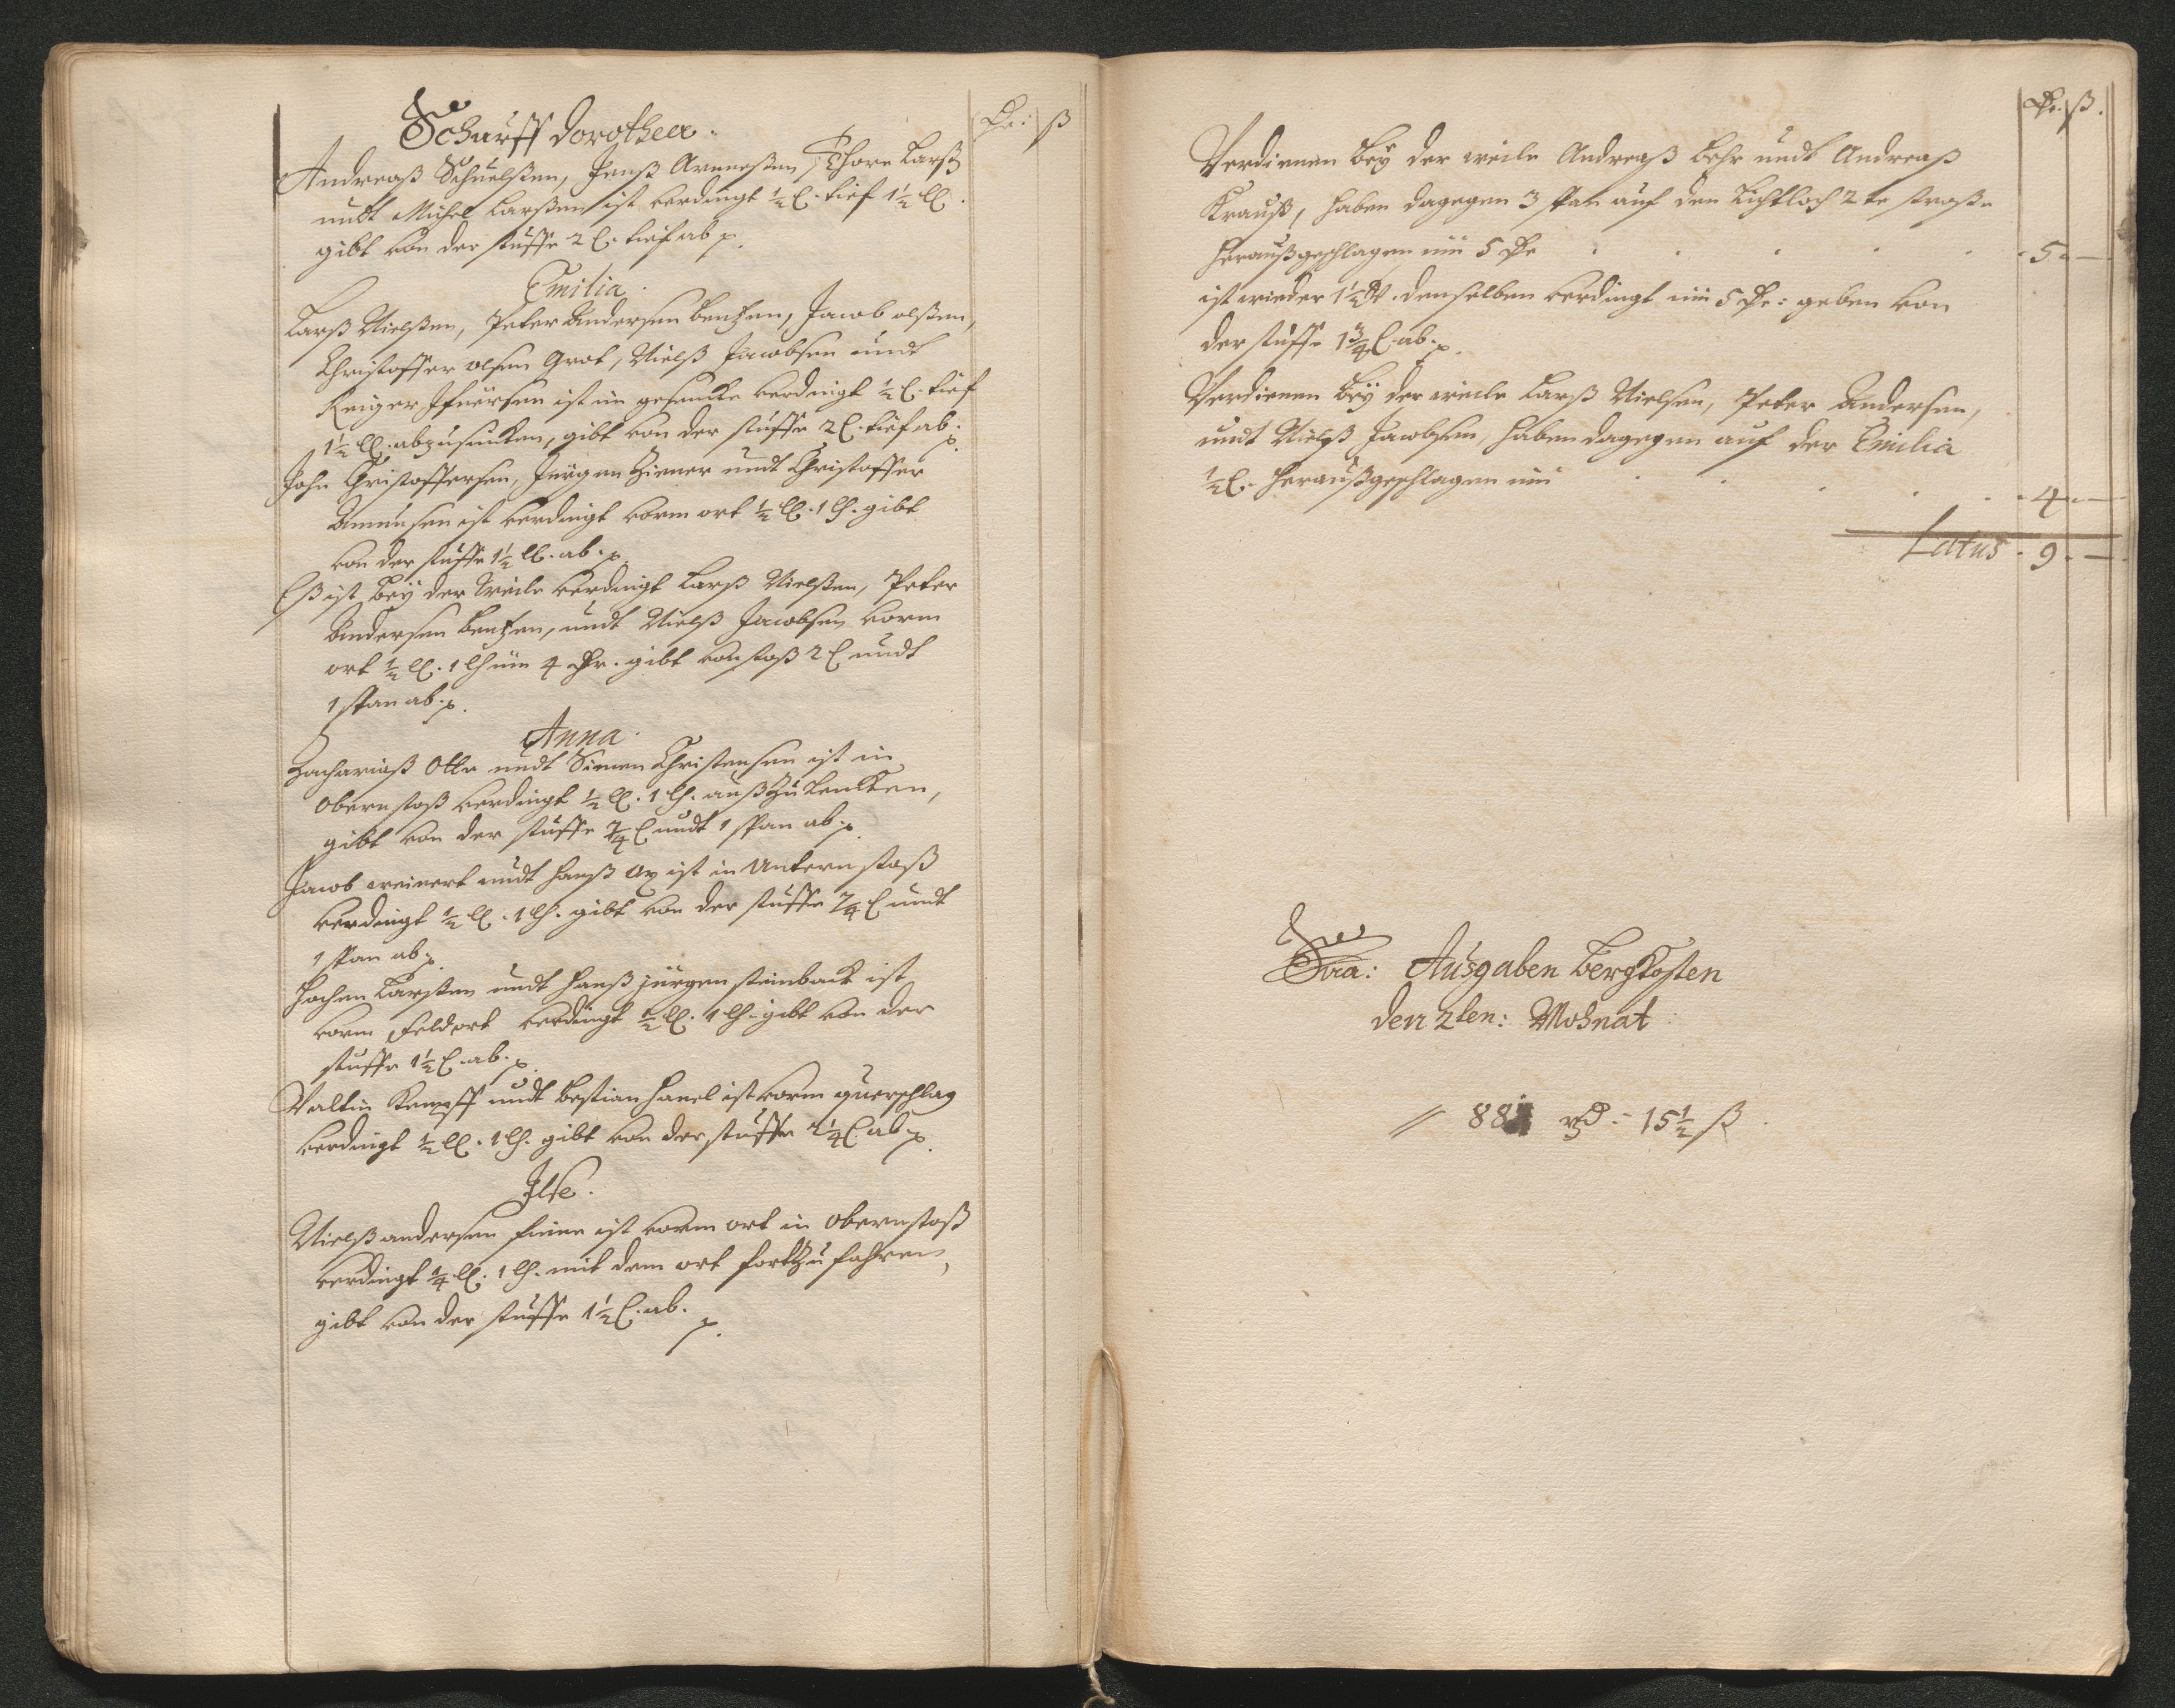 Schurff Dorothea.
Rr: ß
Andreaß Schuelßen, Jenß Arneeßen, Thore Larß
undt Michel Larßen ist verdingt ½ l. tief 1½ ll.
gibt von der stuffe 2 l. tief ab p.
Emilia.
Larß Nielßen, Peter Andersen Bentzen, Jacob olßen,
Christoffer olsen Grot, Nielß Jacobsen undt
ist im gesencke verdingt ½ l. tief
1½ ll. abzusincken, gibt von der stuffe 2 l. tief ab. p.
John Christoffersen, Jürgen Ziener undt Christoffer
Amunsen ist verdingt vorm ort ½ ll. 1 lh. gibt
von der stuffe 1½ ll. ab. p.
Eß ist bey der weile verdingt Larß Nielßen, Peter
Andersen Bentzen, undt Nielß Jacobsen vorm
ort ½ ll. 1 lh üm 4 Rr. gibt vom stoß 2 l undt
1 span ab. p.
Anna.
Zachariaß Otte undt Simen Christensen ist in
obern stoß verdingt ½ ll. 1 lh. außzulencken,
gibt von der stuffe 7/4 l undt 1 span ab. p.
Jacob weinert undt Hanß Ax ist in Untern stoß
verdingt ½ ll. 1 lh. gibt von der stuffe 7/4 l undt
1 span ab. p.
Jochen Larßen undt Hanß jürgen steinback ist
vorm Feldort verdingt ½ ll. 1 lh. gibt von der
stuffe 1½ l. ab. p.
Valtin Kempff undt Bestian Hanel ist vorm querschlag
verdingt ½ ll. 1 lh. gibt von der stuffe 2¼ l. ab p.
Ilse.
Nielß andersen ist vorm ort in obern stoß
verdingt ¼ ll. 1 lh. mit dem ort fortzufahren,
gibt von der stuffe 1½ l. ab. p.
Rr. ß.
Verdienen bey der weile Andreaß Behr undt Andreaß
Krauß, haben dagegen 3 span auf den Lichtloch 2te straße
heraußgeschlagen üm 5 Rr . . . . . 5 —
ist wieder 1½ denselben verdingt üm 5 Rr: geben von
der stuffe 1¾ l. ab. p.
Verdienen bey der weile Larß Nielsen, Peter Andersen,
undt Nielß Jacobsen, haben dagegen auf der Emilia
½ l. heraußgeschlagen üm . . . . . 4 —
Latus . 9. —
Sva: Ausgaben Bergkosten
den 2ten: Mohnat:
// 88 rd - 15½ ß